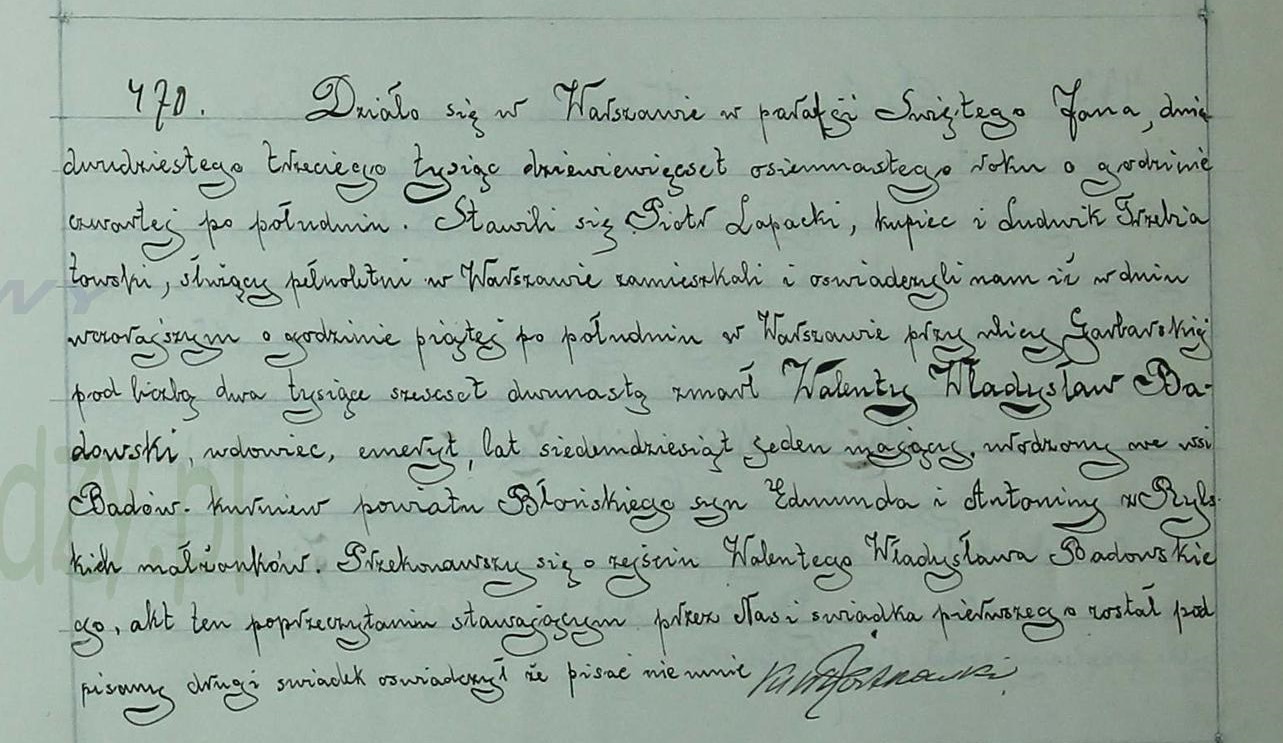 470. Działo się w Warszawie w parafji Świętego Jana, dnia
dwudziestego trzeciego tysiąc dziewiewięcset osiemnastego roku o godzinie
czwartej po południu. Stawili się Piotr Łapacki, kupiec i Ludwik Trzebia
towski, służący pełnoletni w Warszawie zamieszkali i oswiadczyli nam iż w dniu
wczorajszym o godzinie piątej po południu w Warszawie przy ulicy Garbarskiej
pod liczbą dwa tysiące szescset dwunastą zmarł Walenty Władysław Ba-
dowski, wdowiec, emeryt, lat siedemdziesiąt jeden mający, urodzony we wsi
Badów-kurniew powiatu Błońskiego syn Edmunda i Antoniny z Ryls-
kich małżonków. Przekonawszy się o zejściu Walentego Władysława Badowskie
go, akt ten poprzeczytaniu stawającym przez Nas i swiadka pierwszego został pod
pisany drugi swiadek oswiadczył że pisać nie umie